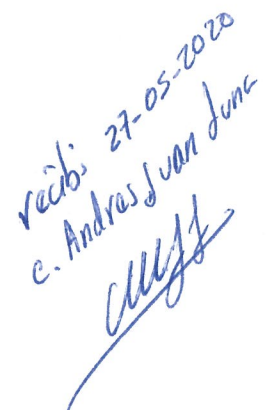 recibi 27-05-2020
c. Andres Juan Juna